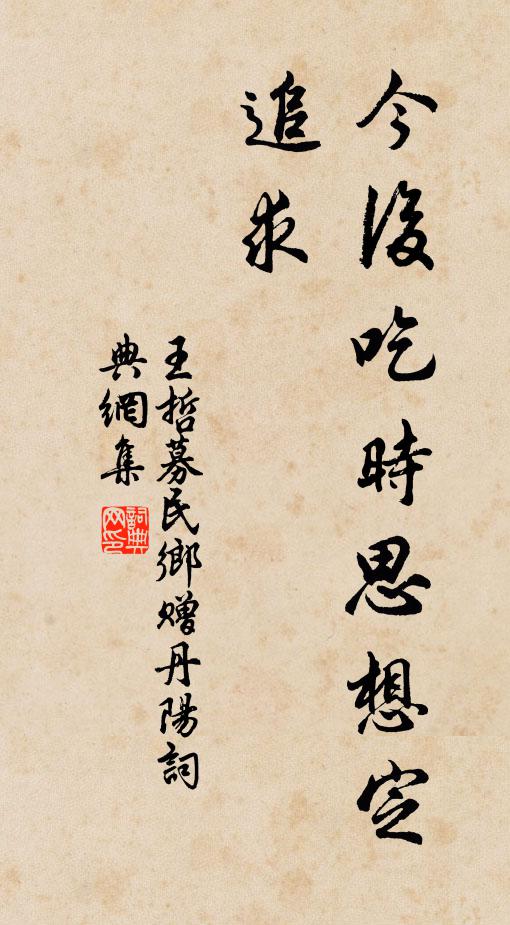 今後吃時思想定
追求
王哲蓦民鄉贈丹陽詞
典網集
詞典
网印